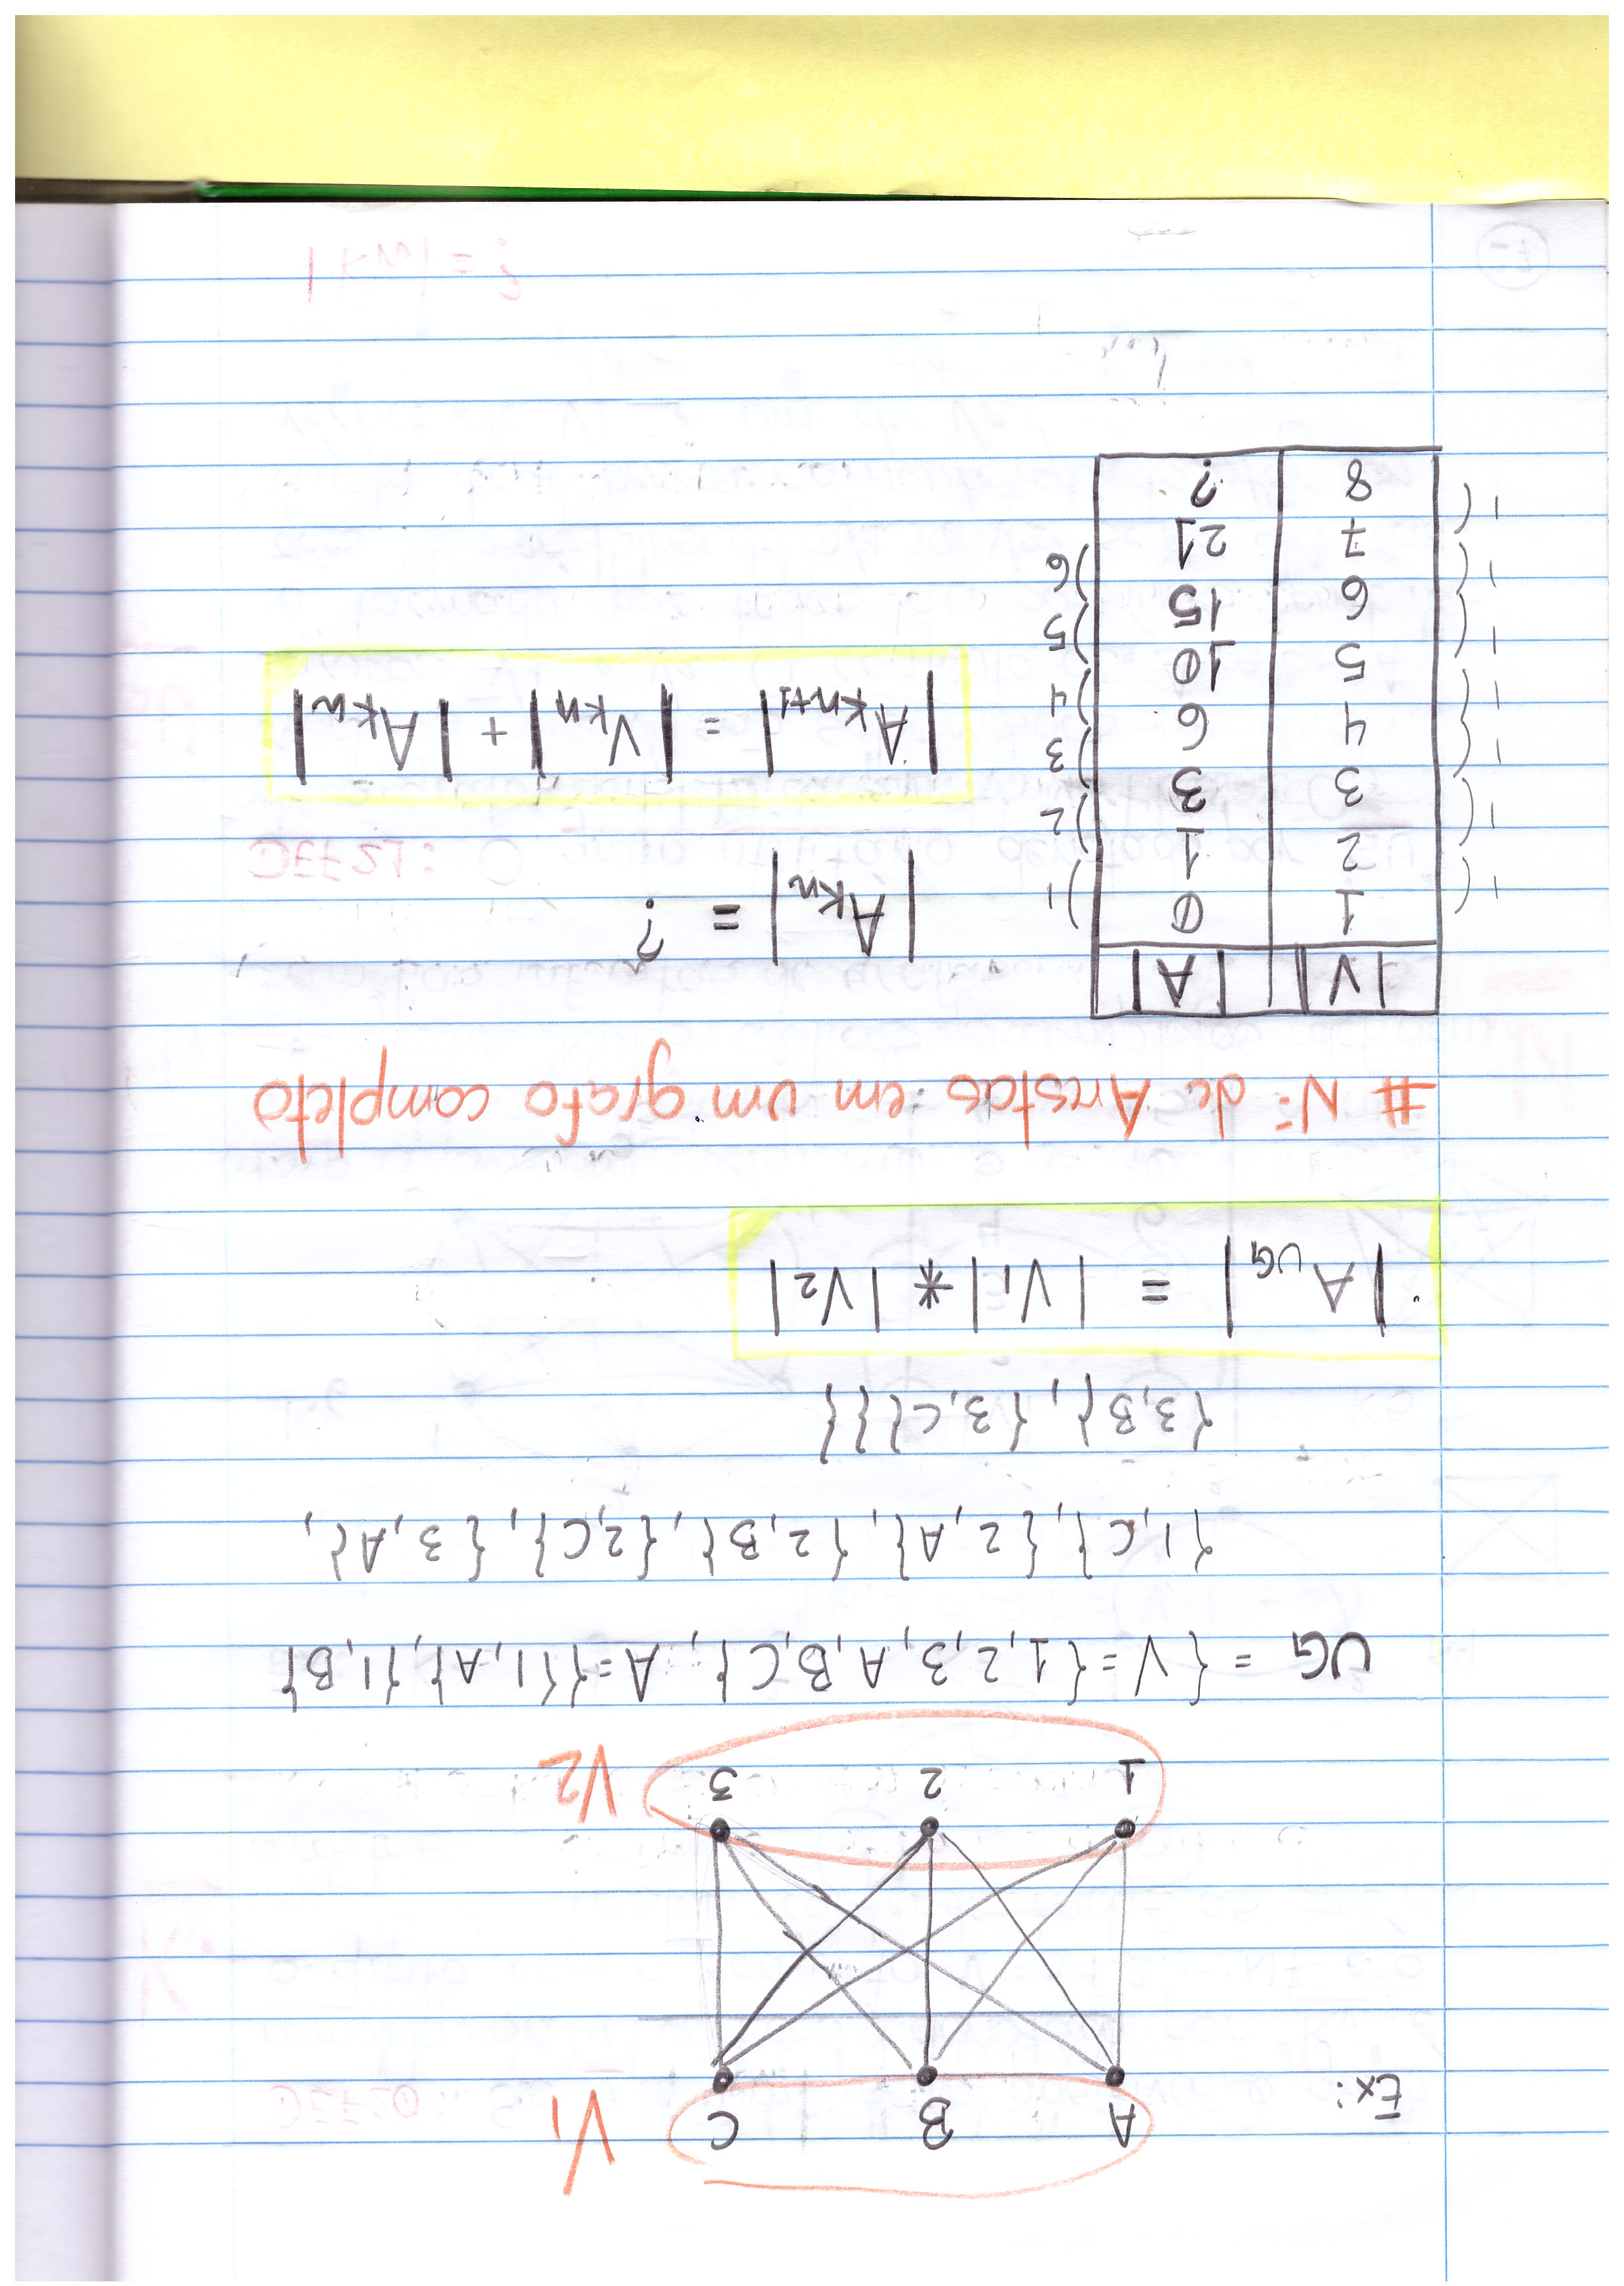 Ex:
A B C V1
1 2 3 V2
UG = { V = {1, 2, 3, A, B, C}, A = {{1, A}, {1, B}
{1, C}, {2, A}, {2, B}, {2, C}, {3, A},
{3, B}, {3, C}}}
|A_UG| = |V1| * |V2|
# Nº de Arestas em um grafo completo
|V| |A|
1 0
1 ( ) 1
2 1
1 ( ) 2
3 3
1 ( ) 3
4 6
1 ( ) 4
5 10
1 ( ) 5
6 15
1 ( ) 6
7 21
1 (
8 ?
|A_Kn| = ?
|A_Kn+1| = |V_Kn| + |A_Kn|